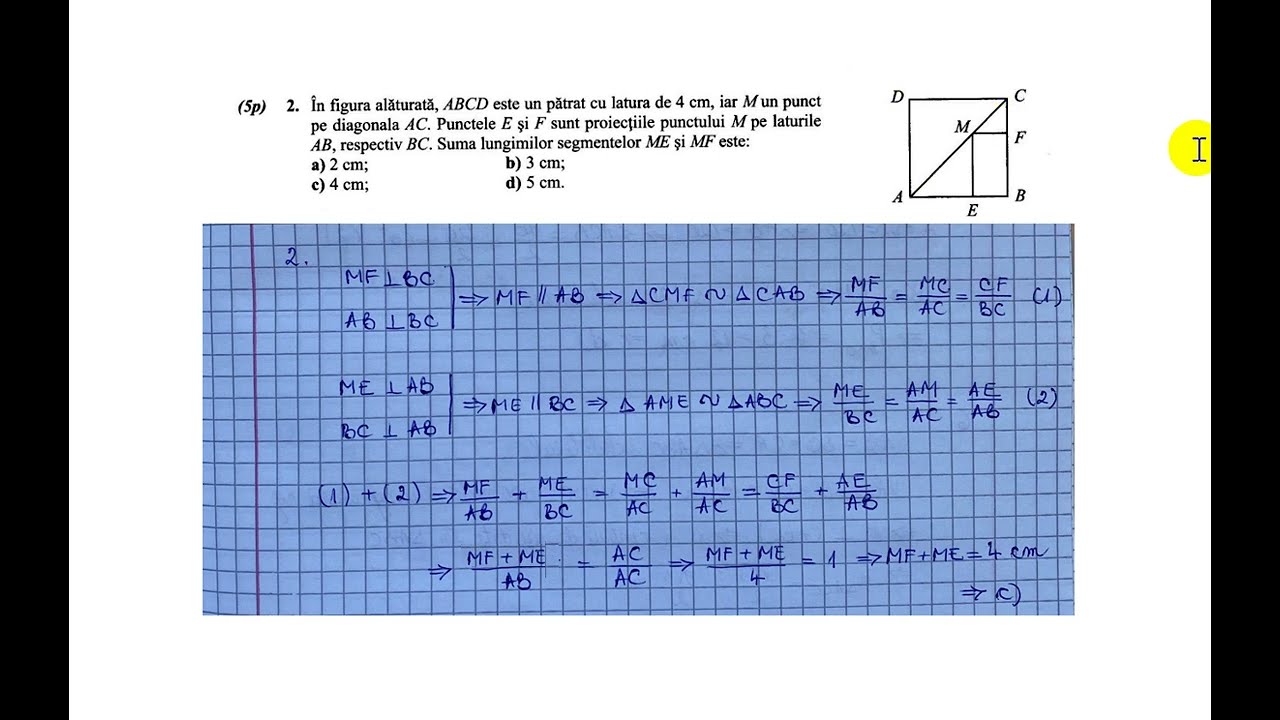 (5p) 2. În figura alăturată, ABCD este un pătrat cu latura de 4 cm, iar M un punct
pe diagonala AC. Punctele E și F sunt proiecțiile punctului M pe laturile
AB, respectiv BC. Suma lungimilor segmentelor ME și MF este:
a) 2 cm; b) 3 cm;
c) 4 cm; d) 5 cm.
D C
M F
A B
E
2.
MF ⊥ BC
AB ⊥ BC
⇒ MF ∥ AB ⇒ △CMF ~ △CAB ⇒ MF/AB = MC/AC = CF/BC (1)
ME ⊥ AB
BC ⊥ AB
⇒ ME ∥ BC ⇒ △AME ~ △ABC ⇒ ME/BC = AM/AC = AE/AB (2)
(1) + (2) ⇒ MF/AB + ME/BC = MC/AC + AM/AC = CF/BC + AE/AB
⇒ MF + ME/AB = AC/AC ⇒ MF + ME/4 = 1 ⇒ MF + ME = 4 cm
⇒ c)